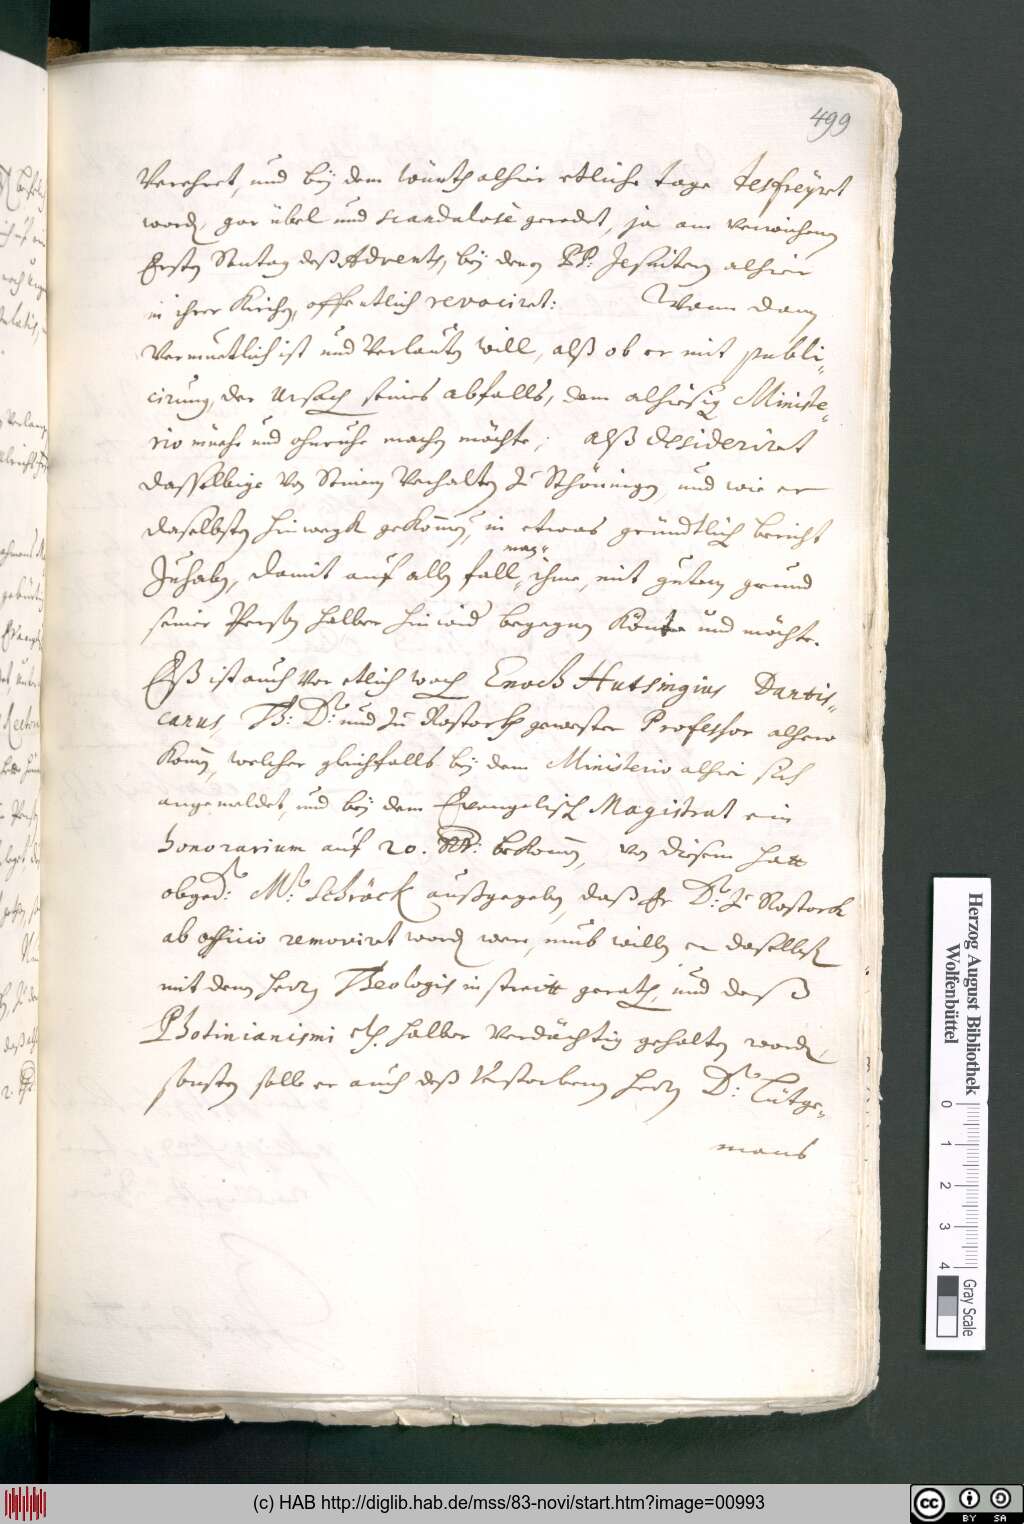 499
Verehret, und bej dem würth alhier etliche tage desfreyret
word, gar übel und scandalose geredet, ja am verwichenen
Ersten Sontag deß Advents, bej denen PP: Jesuiten alhier
in ihrer Kirchen, offentlich revociret: Wann dann
Vermuetlich ist und Verlauten will, alß ob er mit publi-
cirung der Ursach seines abfalls, dem alhiesig Ministe-
rio muehe und ohnruhe machen möchte; alß desideriret
dasselbige von Seinem Verhalten zu Schöningen, und wie er
daselbsten hinwegk gekommen, in etwas gründtlich bericht
Zuhaben, damit auf allen fall man ihme, mit gutem grund
seiner Person halber hinwid begegnen Könte und möchte.
Eß ist auch vor etlich woch Enoch Hutsingius
carus, Th: Dr: und zu Rostock gewester Professor alhero
Komm, welcher gleichfalls bej dem Ministerio alhie sich
angemeldet, und bej dem Evangelisch Magistrat ein
honorarium auf 20. bekomm, von diesem hatt
obged: Mr: Schröck außgegeben, daß Er Dr: zu Rostock
ab officio removiret word were, umb willen er daselbst
mit denen Herrn Theologis in streitt gerath, und deß
Photinianismi etc. halber verdächtig gehalten word,
sonsten solle er auch deß Verstorbenen Herrn Dr: Lütge-
mans
Herzog August Bibliothek
Wolfenbüttel
0 1 2 3 4
Gray Scale
(c) HAB http://diglib.hab.de/mss/83-novi/start.htm?image=00993
cc BY SA